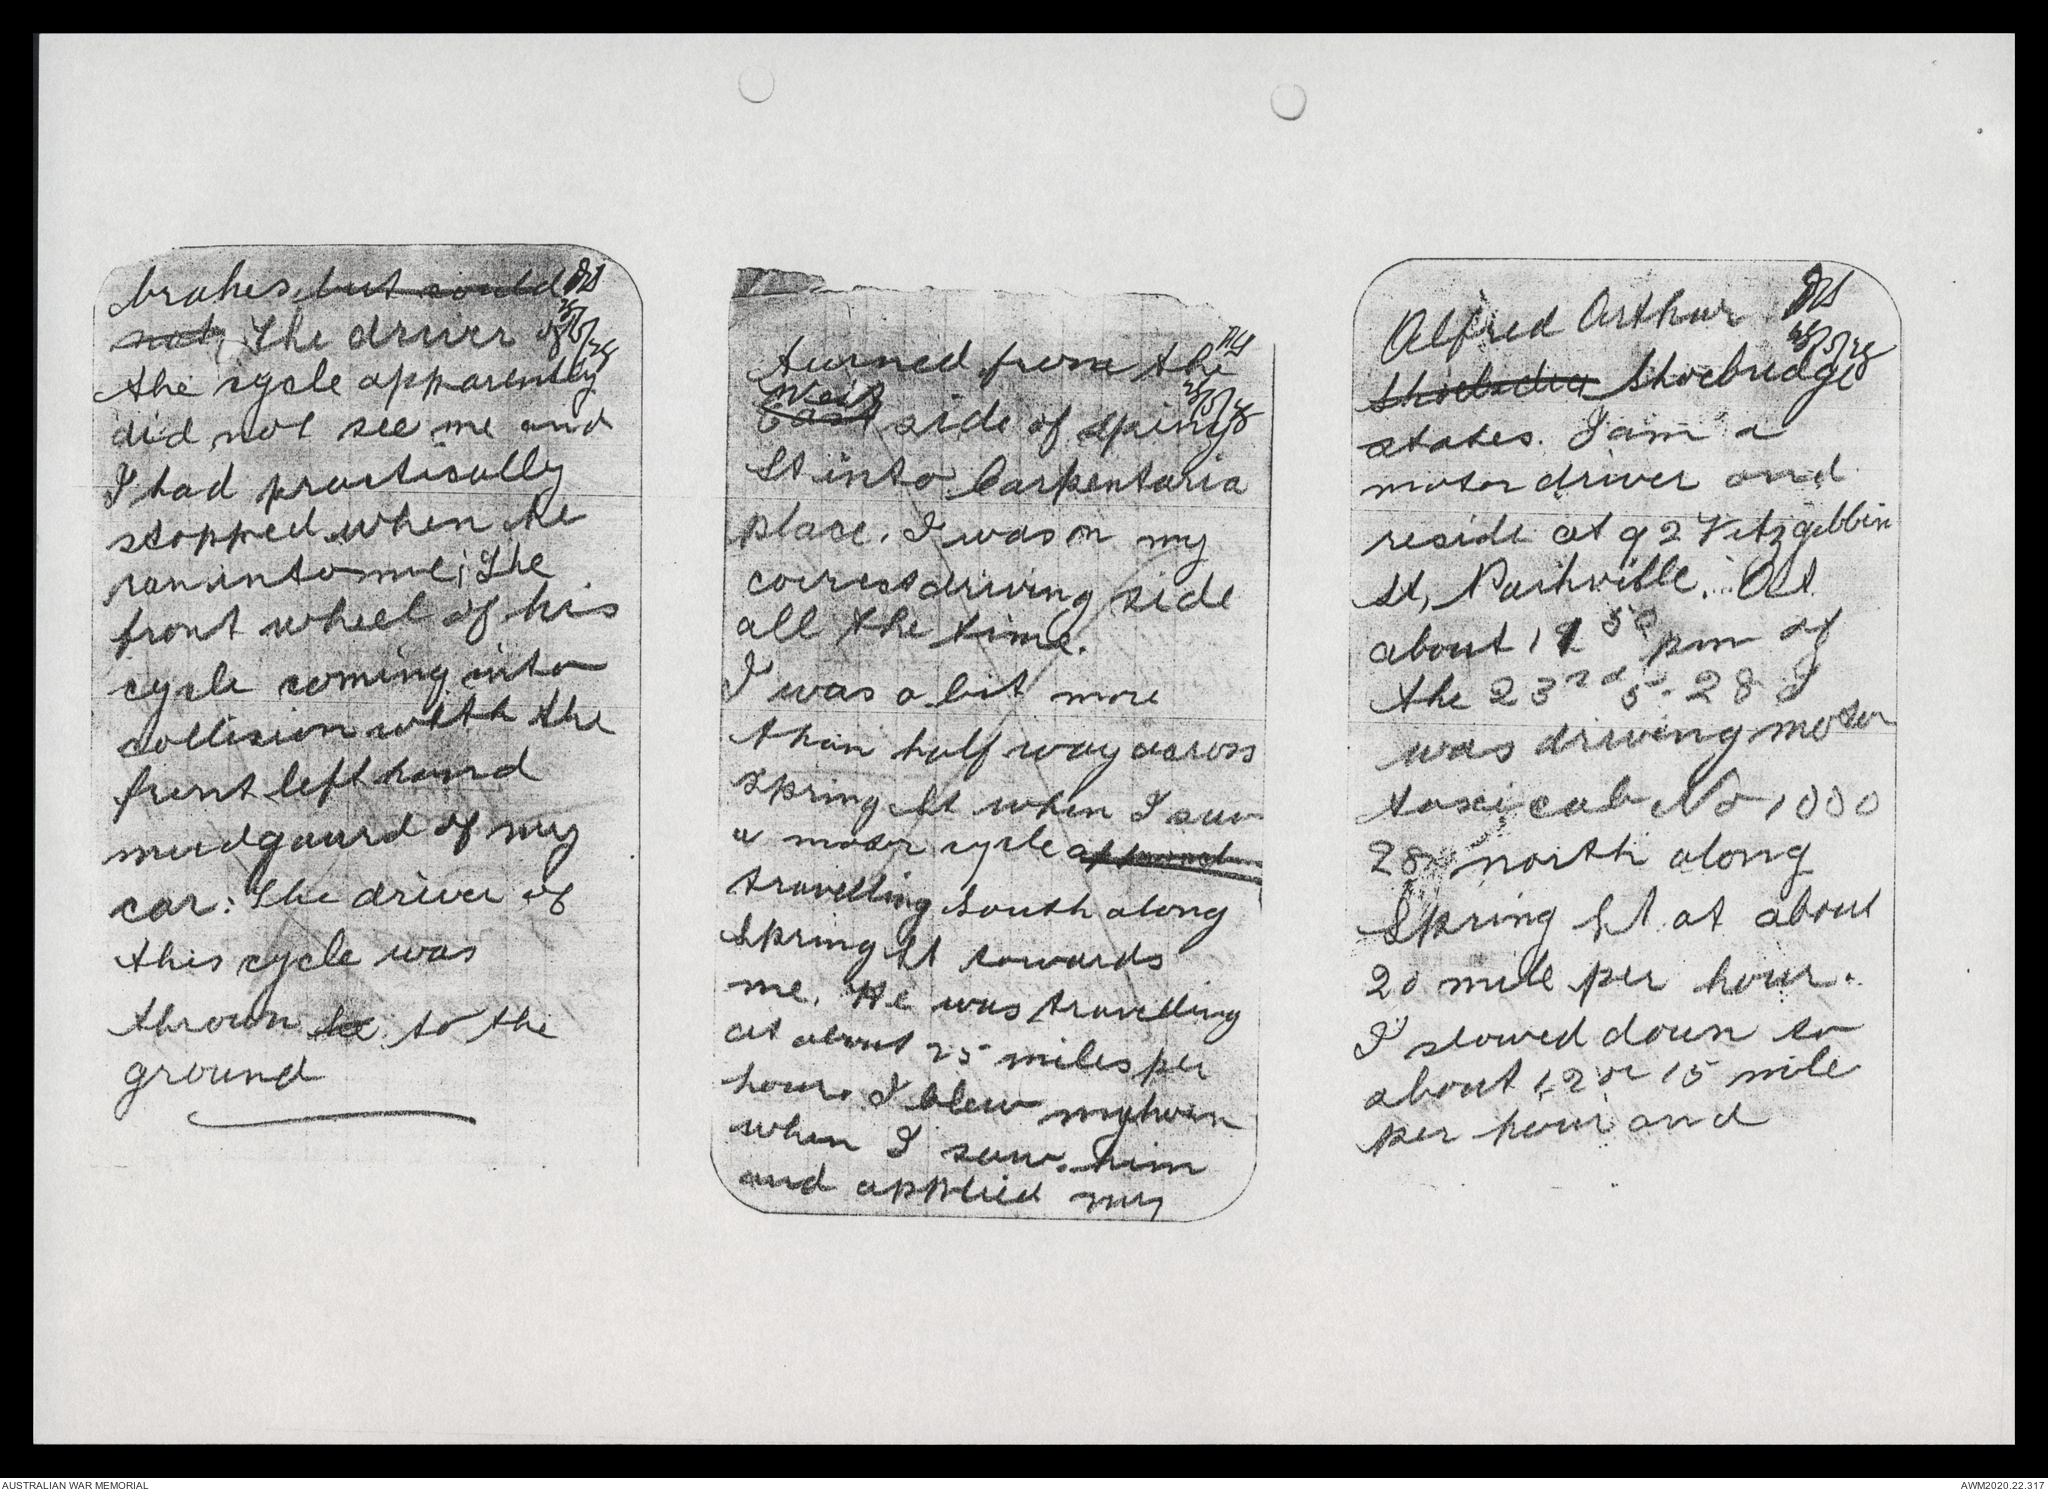 brakes but could
not, The driver of
the cycle apparently
did not see me and
I had practically
stopped when he
ran into me; The
front wheel of his
cycle coming into
collision with the
front left hand
mudgaurd of my
car: The driver of
this cycle was
thrown to the
ground
turned from the
West
East side of Spring
St into Carpentaria
place. I was on my
correct driving side
all the time.
I was a bit more
than half way across
Spring St when I saw
a motor cycle approach
travelling South along
Spring St towards
me. He was travelling
at about 25 miles per
hour. I blew my horn
when I saw him
and applied my
Alfred Arthur
Shoebridge
states. I am a
motor driver and
reside at 92 Fitzgibbin
St, Parkville. At
about 12 50 pm of
the 23rd 5. 28 I
was driving motor
taxi cab No 1000
28 north along
Spring St at about
20 mile per hour.
I slowed down to
about 12 or 15 mile
per hour and
AUSTRALIAN WAR MEMORIAL
AWM2020.22.317